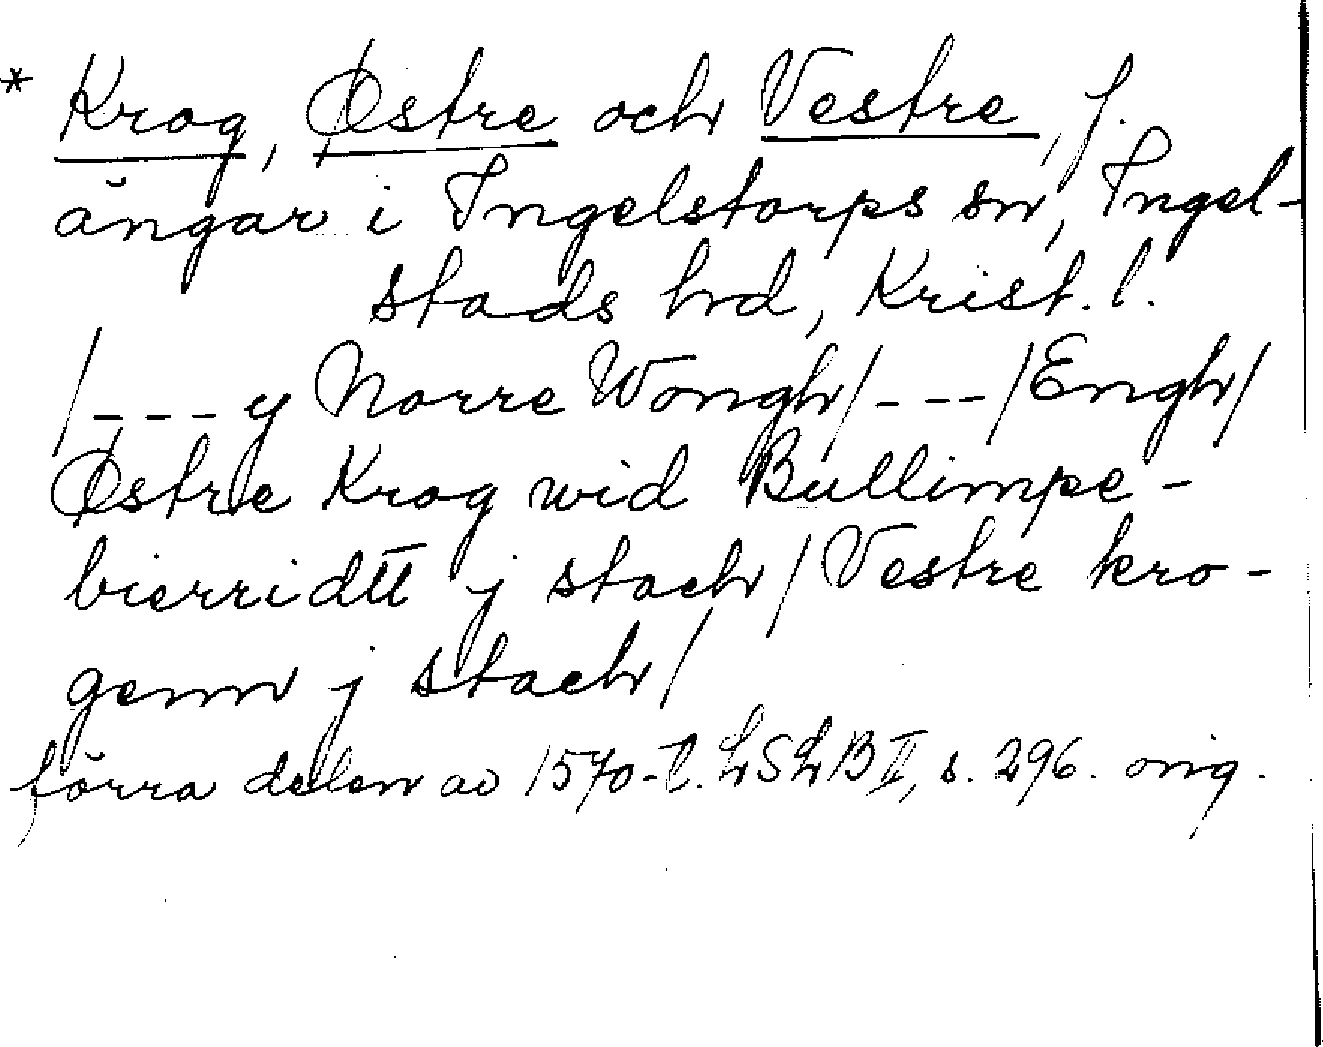 * Krog, Østre och Vestre, f.
ängar i Ingelstorps sn, Ingel-
stads hd, Krist. l.
/---y Norre Wongh/---/Engh/
Østre Krog wid Bullimpe-
bierridtt j stach/Vestre kro-
genn j stach/
förra delen av 1570-t. LSLB II, s. 296. orig.